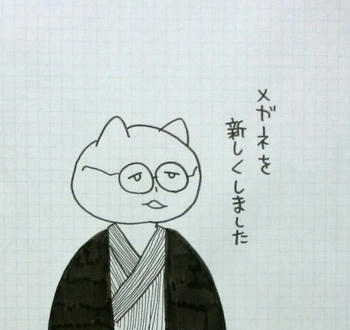 メガネを
新しくしました